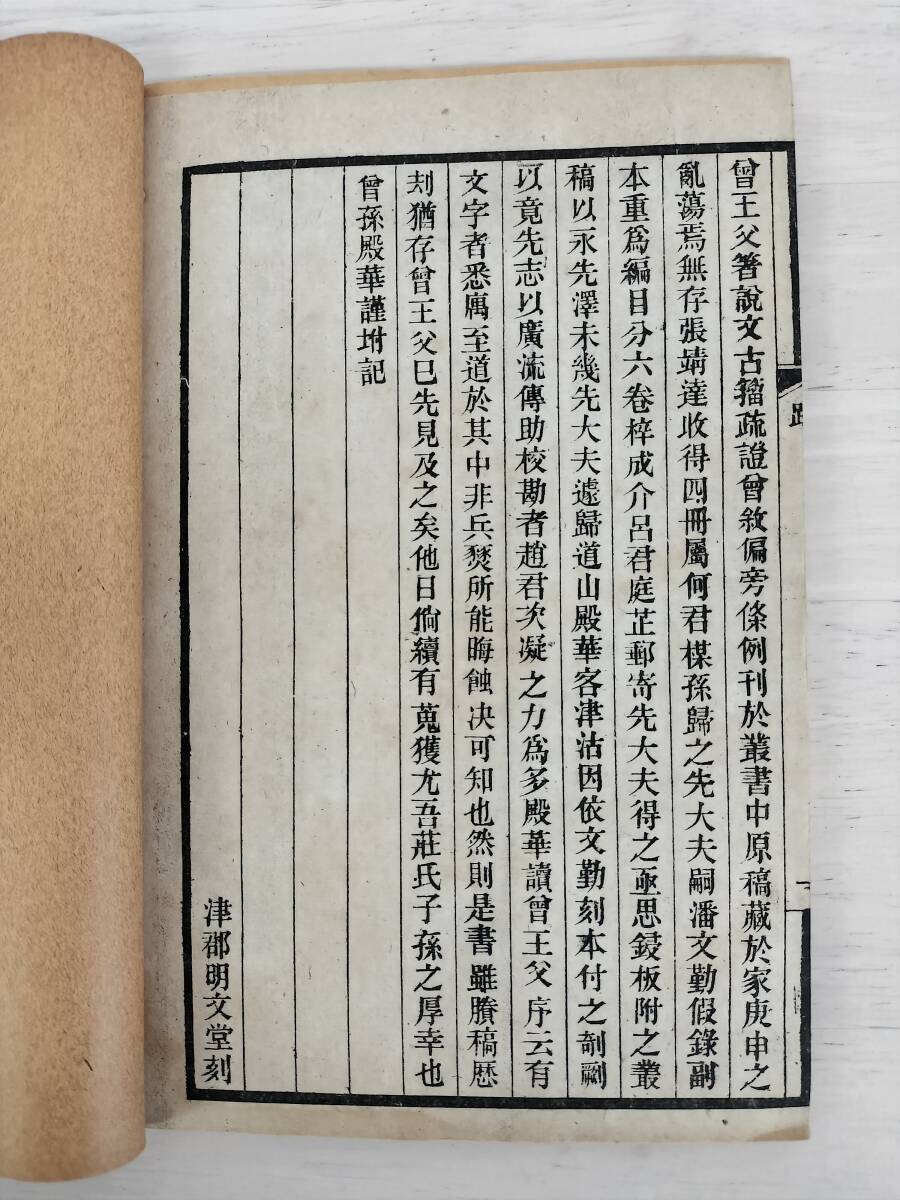 曾王父箸說文古籒疏證曾敘偏旁條例刊於叢書中原稿藏於家庚申之
亂蕩焉無存張靖達收得四冊屬何君楳孫歸之先大夫嗣潘文勤假錄副
本重爲編目分六卷梓成介呂君庭芷郵寄先大夫得之亟思鋟板附之叢
稿以永先澤未幾先大夫遽歸道山殿華客津沽因依文勤刻本付之剞劂
以竟先志以廣流傳助校勘者趙君次凝之力爲多殿華讀曾王父序云有
文字者悉寓至道於其中非兵燹所能晦蝕決可知也然則是書雖賸稿歷
刼猶存曾王父已先見及之矣他日倘續有蒐獲尤吾莊氏子孫之厚幸也
曾孫殿華謹坿記
津郡明文堂刻